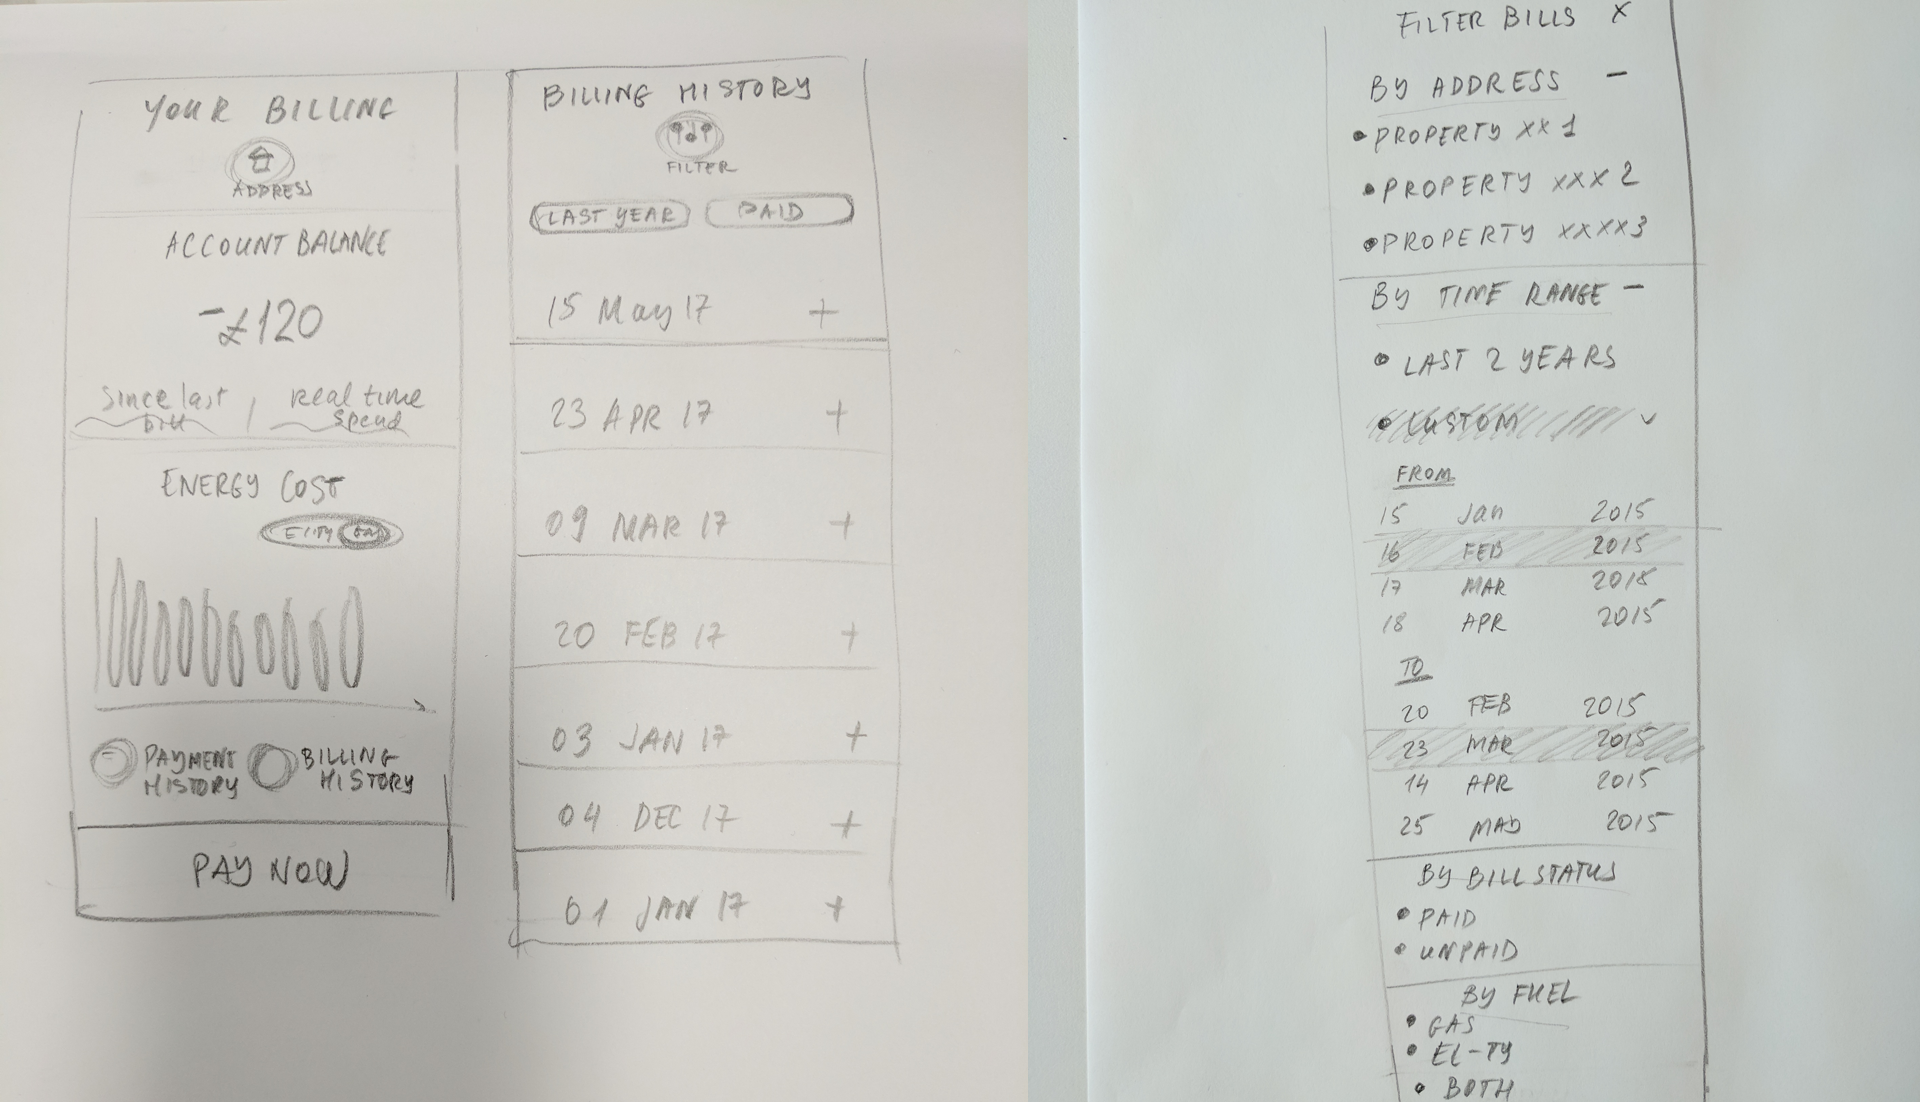 YOUR BILLING
ADDRESS
ACCOUNT BALANCE
-£120
Since last bill / real time spend
ENERGY COST
El-ty Gas
PAYMENT HISTORY
BILLING HISTORY
PAY NOW
BILLING HISTORY
FILTER
LAST YEAR PAID
15 May 17 +
23 APR 17 +
09 MAR 17 +
20 FEB 17 +
03 JAN 17 +
04 DEC 17 +
01 JAN 17 +
FILTER BILLS X
BY ADDRESS -
• PROPERTY XX 1
• PROPERTY XXX 2
• PROPERTY XXXX3
BY TIME RANGE -
• LAST 2 YEARS
• CUSTOM
FROM
15 Jan 2015
16 FEB 2015
17 MAR 2015
18 APR 2015
TO
20 FEB 2015
23 MAR 2015
14 APR 2015
25 2015
BY BILL STATUS
• PAID
• UNPAID
BY FUEL
• GAS
• EL-TY
• BOTH